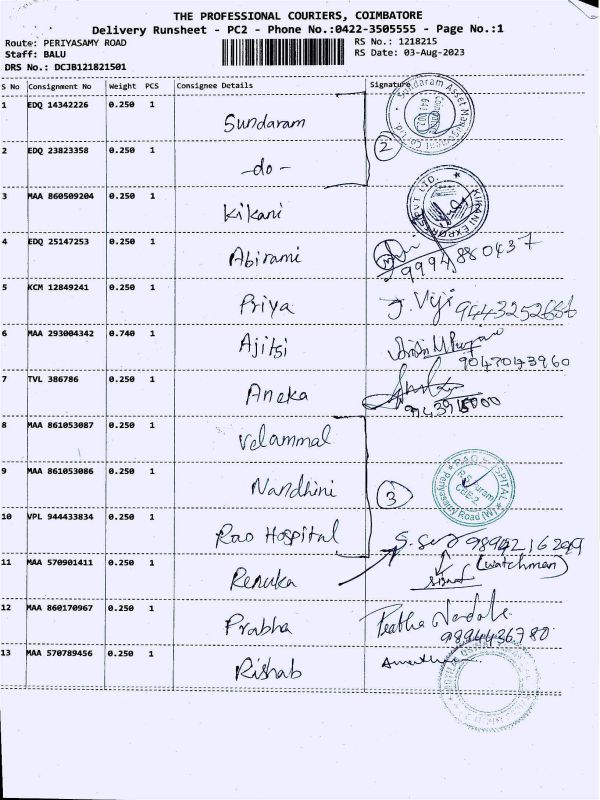 THE PROFESSIONAL COURIERS, COIMBATORE
Delivery Runsheet - PC2 - Phone No.:0422-3505555 - Page No.:1
Route: PERIYASAMY ROAD
RS No.: 1218215
Staff: BALU
RS Date: 03-Aug-2023
DRS No.: DCJB121821501
S No Consignment No Weight PCS Consignee Details Signature
1 EDQ 14342226 0.250 1 Sundaram
2 EDQ 23823358 0.250 1 -do- 2
3 MAA 860509204 0.250 1 Kikani
4 EDQ 25147253 0.250 1 Abirami 9994880437
5 KCM 12849241 0.250 1 Priya J. Viji
6 MAA 293004342 0.740 1 Ajitsi 9047043960
7 TVL 386786 0.250 1 Aneka
8 MAA 861053087 0.250 1 Velammal
9 MAA 861053086 0.250 1 Nandhini 3
10 VPL 944433834 0.250 1 Rao Hospital
11 MAA 570901411 0.250 1 Renuka (watchman)
12 MAA 860170967 0.250 1 Prabha 9894436780
13 MAA 570789456 0.250 1 Rishab